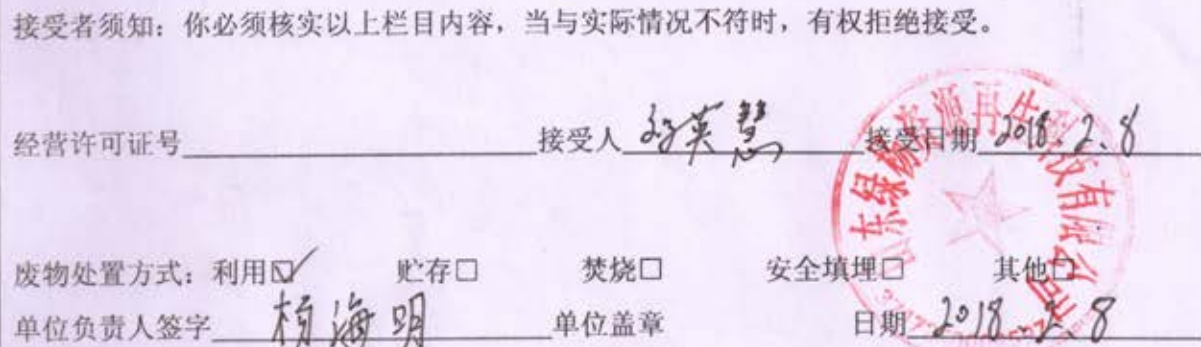 接受者须知：你必须核实以上栏目内容，当与实际情况不符时，有权拒绝接受。
经营许可证号 接受人 孙英慧 接受日期 2018.2.8
废物处置方式：利用☑ 贮存□ 焚烧□ 安全填埋□ 其他□
单位负责人签字 杨海明 单位盖章 日期 2018.2.8
东绿杨资源再生 有限公司